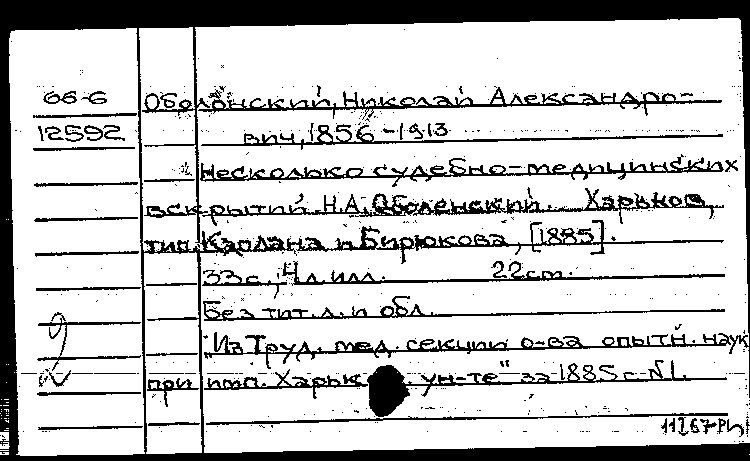 66-6 Оболонский, Николай Александро-
12592 вич, 1856-1913
Несколько судебно-медицинских
вскрытий. Н.А. Оболенский. Харьков,
тип. Каплана и Бирюкова, [1885].
33 с., 4 л. илл. 22 см.
Без тит. л. и обл.
"Из Труд. мед. секции о-ва опытн. наук
2 при имп. Харьк. ун-те" за 1885 г. №1.